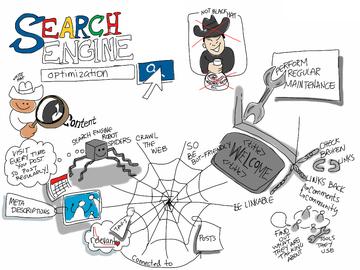 SEARCH
ENGINE
optimization
NOT BLACK HAT
PERFORM
REGULAR
MAINTENANCE
Content
SEARCH ENGINE
ROBOT
SPIDERS
CRAWL
THE
WEB
SO
BE
BOT-FRIENDLY
<title>
WELCOME
</title>
CHECK
BROKEN
LINKS
VISIT
EVERY TIME
YOU POST
SO POST
REGULARLY!
META
DESCRIPTIONS
& LINKABLE
LINKS BACK
inComments
inCommunity
relevant
TAGS
POSTS
Connected to
FIND
OUT
WHAT
THEY ARE
TALKING
ABOUT
TOOLS
THEY
USE